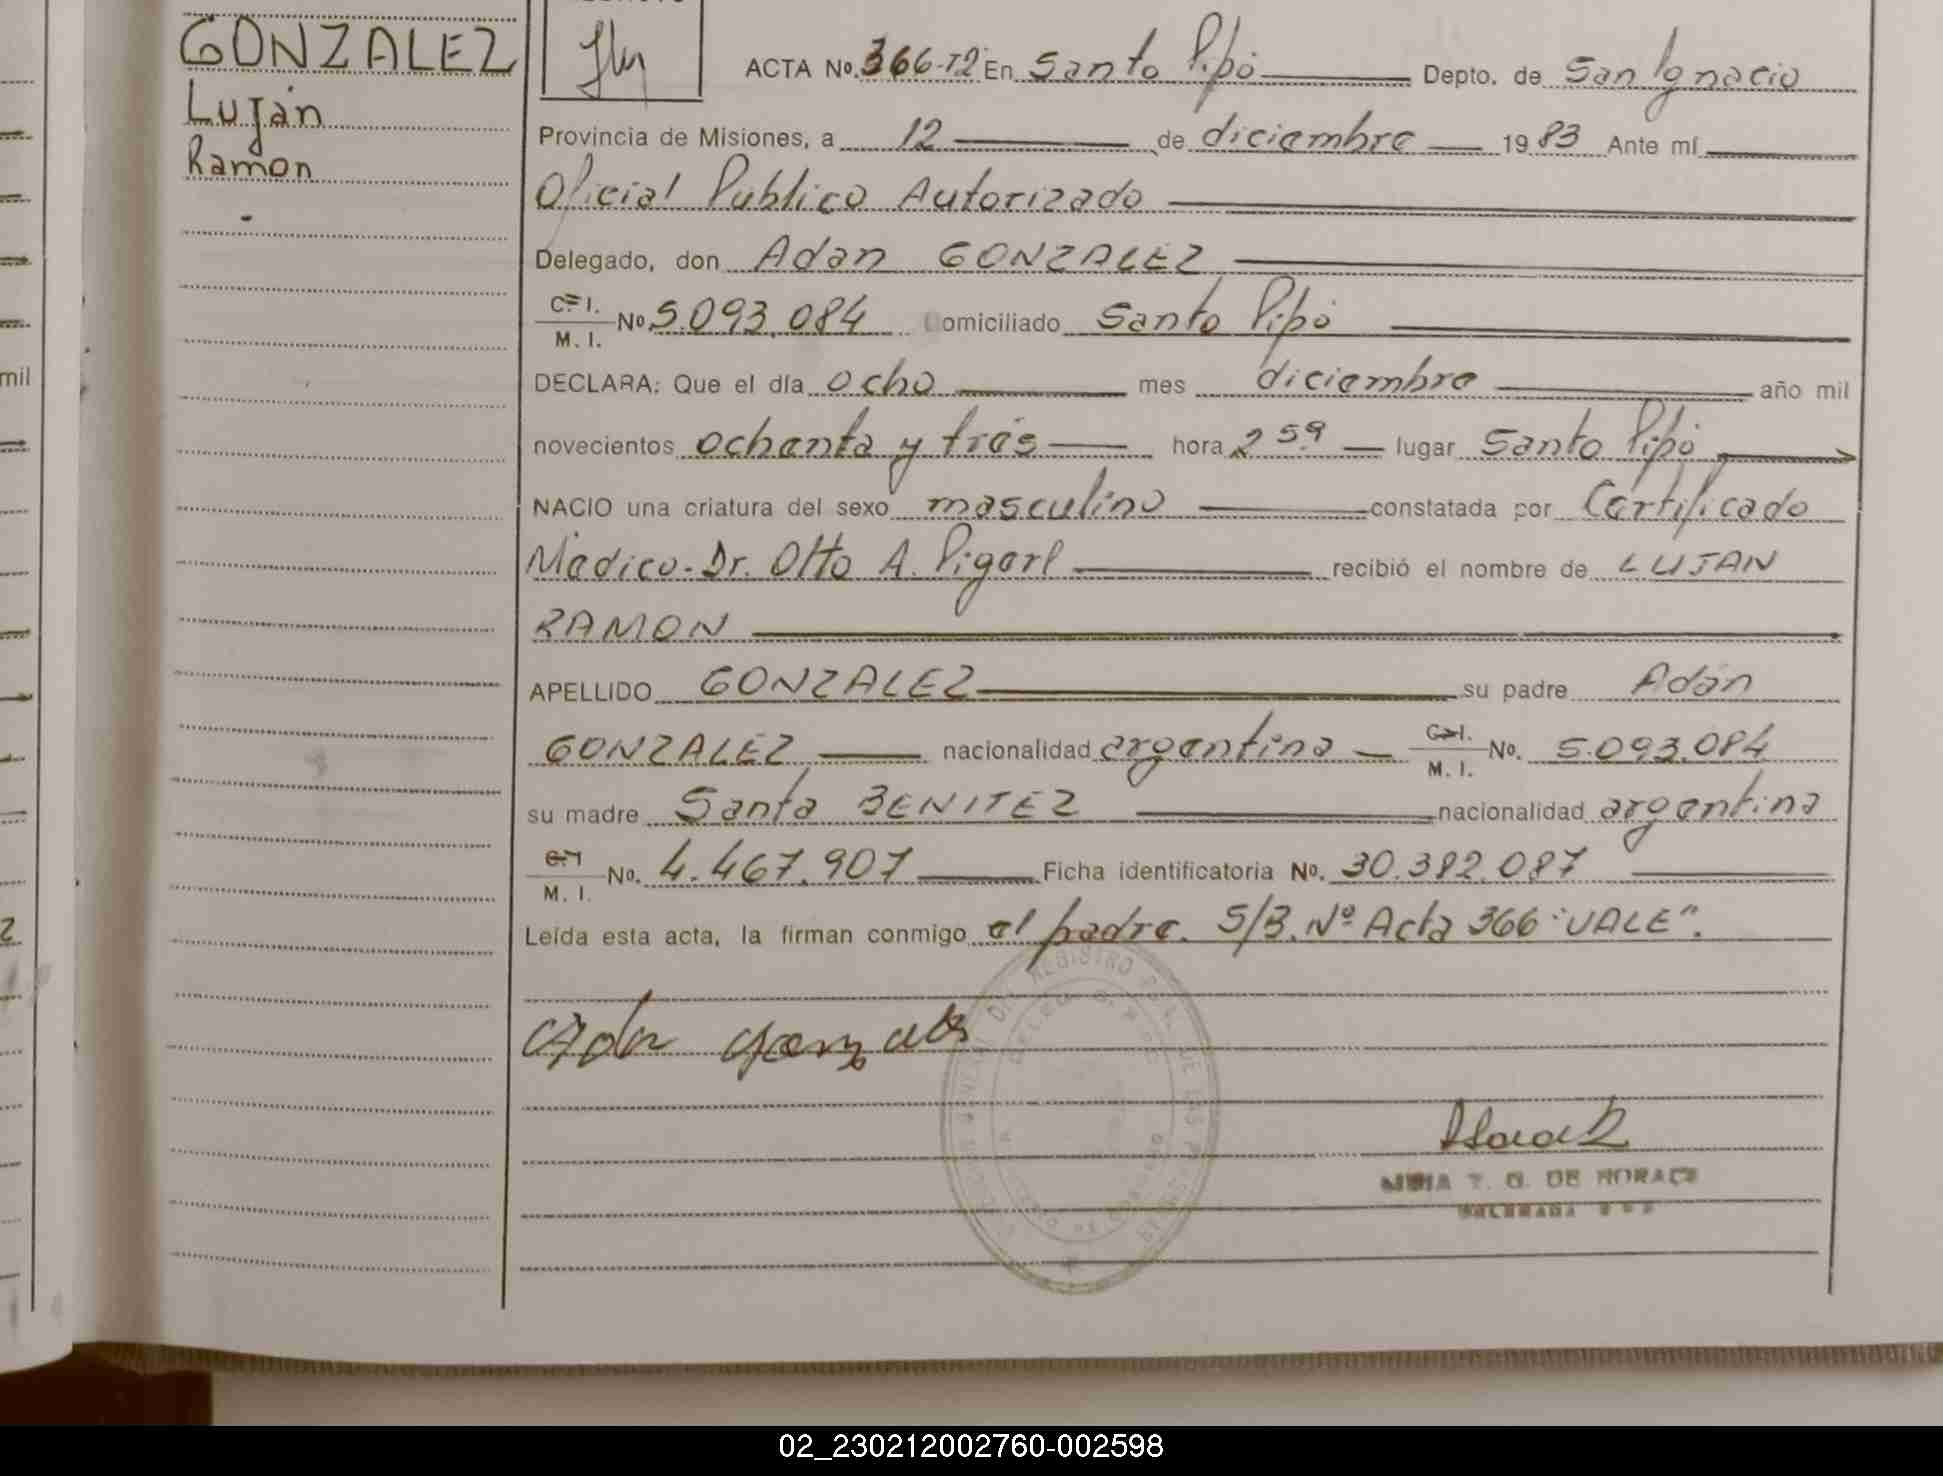 GONZALEZ
Luján
Ramon
ACTA No. 366-T2 En Santo Pipó Depto. de San Ignacio
Provincia de Misiones, a 12 de diciembre 1983 Ante mí
Oficial Publico Autorizado
Delegado, don Adan GONZALEZ
C. I.
M. I. No. 5.093.084 Domiciliado Santo Pipó
DECLARA: Que el día ocho mes diciembre año mil
novecientos ochenta y tres hora 2 59 lugar Santo Pipó
NACIO una criatura del sexo masculino constatada por Certificado
Medico. Dr. Otto A. recibió el nombre de LUJAN
RAMON
APELLIDO GONZALEZ su padre Adán
GONZALEZ nacionalidad argentina C. I.
M. I. No. 5.093.084
su madre Santa BENITEZ nacionalidad argentina
M. I. No. 4.467.907 Ficha identificatoria No. 30.382.087
Leída esta acta, la firman conmigo el padre. S/B. Nº Acta 366 "VALE".
Adan Gonzalez
T. G. DE
mil
2
02_230212002760-002598